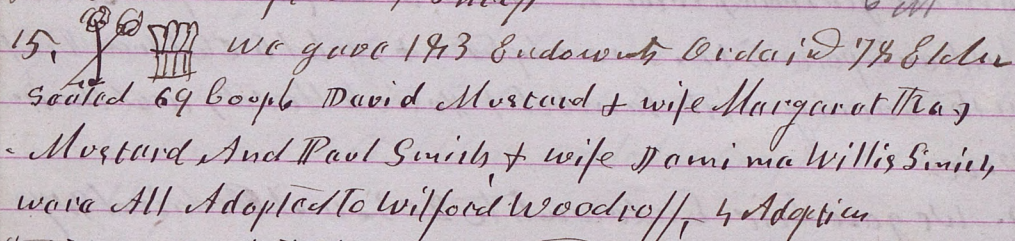 15. We gave 183 Endowmts Ordaind 78 Elders
Sealed 69 Coupls David Mustard & wife Margaret Thay
- Mustard And Paul Smith & wife Damima Willis Smith
ware All Adopted To Wilford Woodruff, 4 Adoption